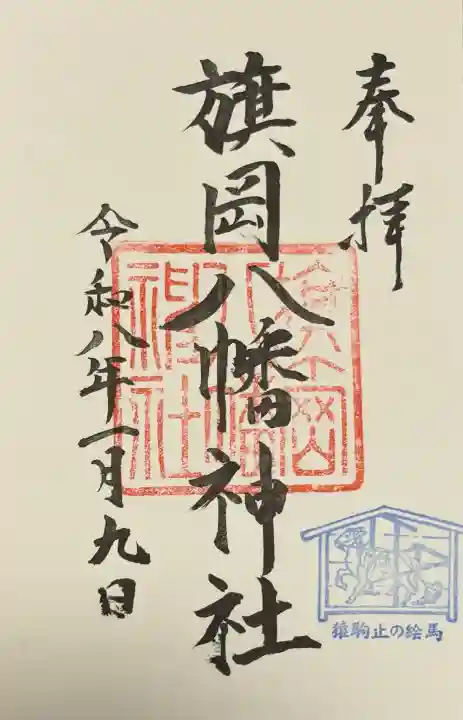 奉拝
旗岡八幡神社
令和八年一月九日
旗岡八幡神社
猿駒止の絵馬